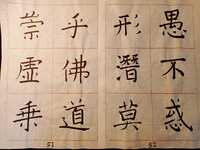 愚不惑
形潛莫
52
乎佛道
崇虚乘
51